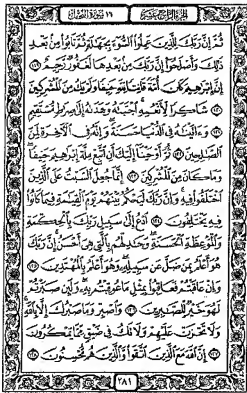 الجزء الرابع عشر ١٦ سورة النحل
ثُمَّ إِنَّ رَبَّكَ لِلَّذِينَ عَمِلُوا السُّوءَ بِجَهَالَةٍ ثُمَّ تَابُوا مِنْ بَعْدِ
ذَلِكَ وَأَصْلَحُوا إِنَّ رَبَّكَ مِنْ بَعْدِهَا لَغَفُورٌ رَحِيمٌ ﴿١١٩﴾
إِنَّ إِبْرَاهِيمَ كَانَ أُمَّةً قَانِتًا لِلَّهِ حَنِيفًا وَلَمْ يَكُ مِنَ الْمُشْرِكِينَ
﴿١٢٠﴾ شَاكِرًا لِأَنْعُمِهِ اجْتَبَاهُ وَهَدَاهُ إِلَى صِرَاطٍ مُسْتَقِيمٍ
﴿١٢١﴾ وَآتَيْنَاهُ فِي الدُّنْيَا حَسَنَةً وَإِنَّهُ فِي الْآخِرَةِ لَمِنَ
الصَّالِحِينَ ﴿١٢٢﴾ ثُمَّ أَوْحَيْنَا إِلَيْكَ أَنِ اتَّبِعْ مِلَّةَ إِبْرَاهِيمَ حَنِيفًا
وَمَا كَانَ مِنَ الْمُشْرِكِينَ ﴿١٢٣﴾ إِنَّمَا جُعِلَ السَّبْتُ عَلَى الَّذِينَ
اخْتَلَفُوا فِيهِ وَإِنَّ رَبَّكَ لَيَحْكُمُ بَيْنَهُمْ يَوْمَ الْقِيَامَةِ فِيمَا كَانُوا
فِيهِ يَخْتَلِفُونَ ﴿١٢٤﴾ ادْعُ إِلَى سَبِيلِ رَبِّكَ بِالْحِكْمَةِ
وَالْمَوْعِظَةِ الْحَسَنَةِ وَجَادِلْهُمْ بِالَّتِي هِيَ أَحْسَنُ إِنَّ رَبَّكَ
هُوَ أَعْلَمُ بِمَنْ ضَلَّ عَنْ سَبِيلِهِ وَهُوَ أَعْلَمُ بِالْمُهْتَدِينَ ﴿١٢٥﴾
وَإِنْ عَاقَبْتُمْ فَعَاقِبُوا بِمِثْلِ مَا عُوقِبْتُمْ بِهِ وَلَئِنْ صَبَرْتُمْ
لَهُوَ خَيْرٌ لِلصَّابِرِينَ ﴿١٢٦﴾ وَاصْبِرْ وَمَا صَبْرُكَ إِلَّا بِاللَّهِ
وَلَا تَحْزَنْ عَلَيْهِمْ وَلَا تَكُ فِي ضَيْقٍ مِمَّا يَمْكُرُونَ
﴿١٢٧﴾ إِنَّ اللَّهَ مَعَ الَّذِينَ اتَّقَوْا وَالَّذِينَ هُمْ مُحْسِنُونَ ﴿١٢٨﴾
٢٨١